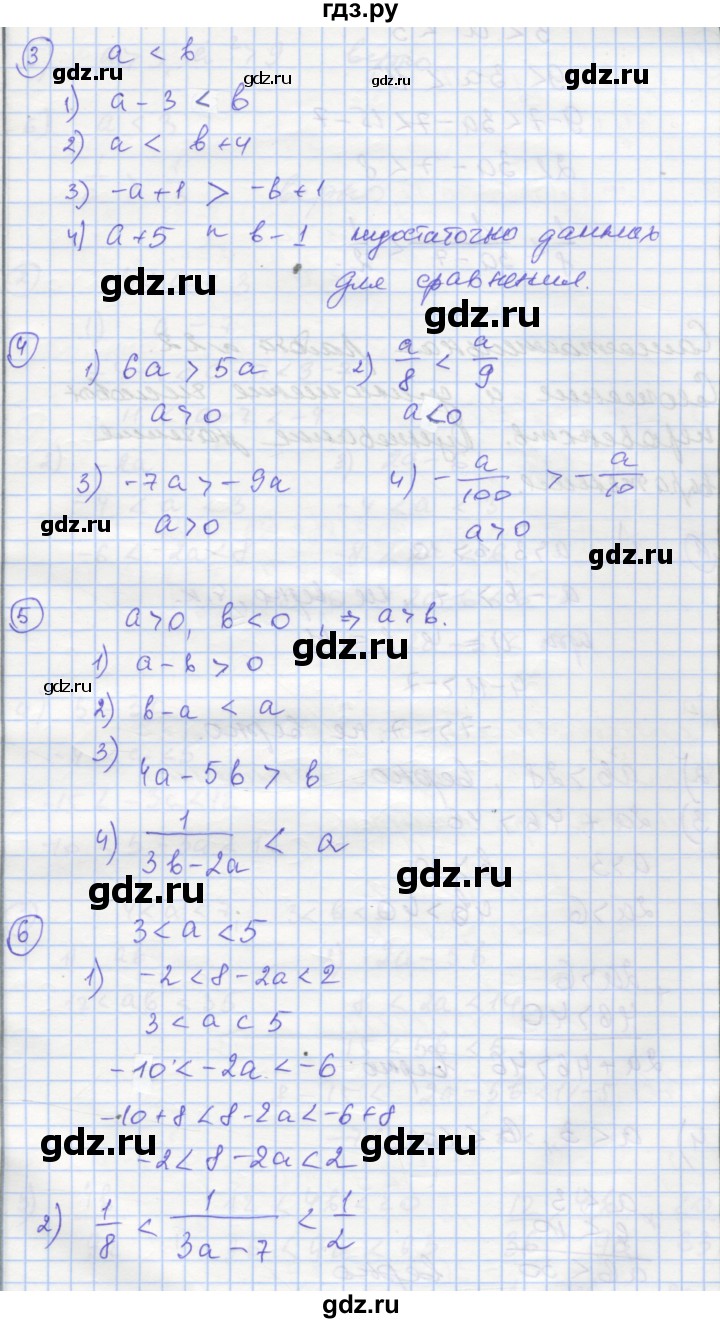 гдз.ру
③ a < b
gdz.ru gdz.ru gdz.ru
1) a - 3 < b
2) a < b + 4
3) -a + 1 > -b + 1
4) a + 5 и b - 1 недостаточно данных
для сравнения.
gdz.ru
④ 1) 6a > 5a 2) a/8 < a/9
a > 0 a < 0
3) -7a > -9a 4) -a/100 > -a/10
gdz.ru a > 0 a > 0
gdz.ru
⑤ a > 0, b < 0, ⇒ a > b.
gdz.ru
1) a - b > 0
gdz.ru
2) b - a < a
3) 4a - 5b > b
4) 1/(3b - 2a) < a
gdz.ru gdz.ru
⑥ 3 < a < 5
1) -2 < 8 - 2a < 2
3 < a < 5
-10 < -2a < -6
-10 + 8 < 8 - 2a < -6 + 8
gdz.ru gdz.ru
-2 < 8 - 2a < 2
2) 1/8 < 1/(3a - 7) < 1/2
gdz.ru